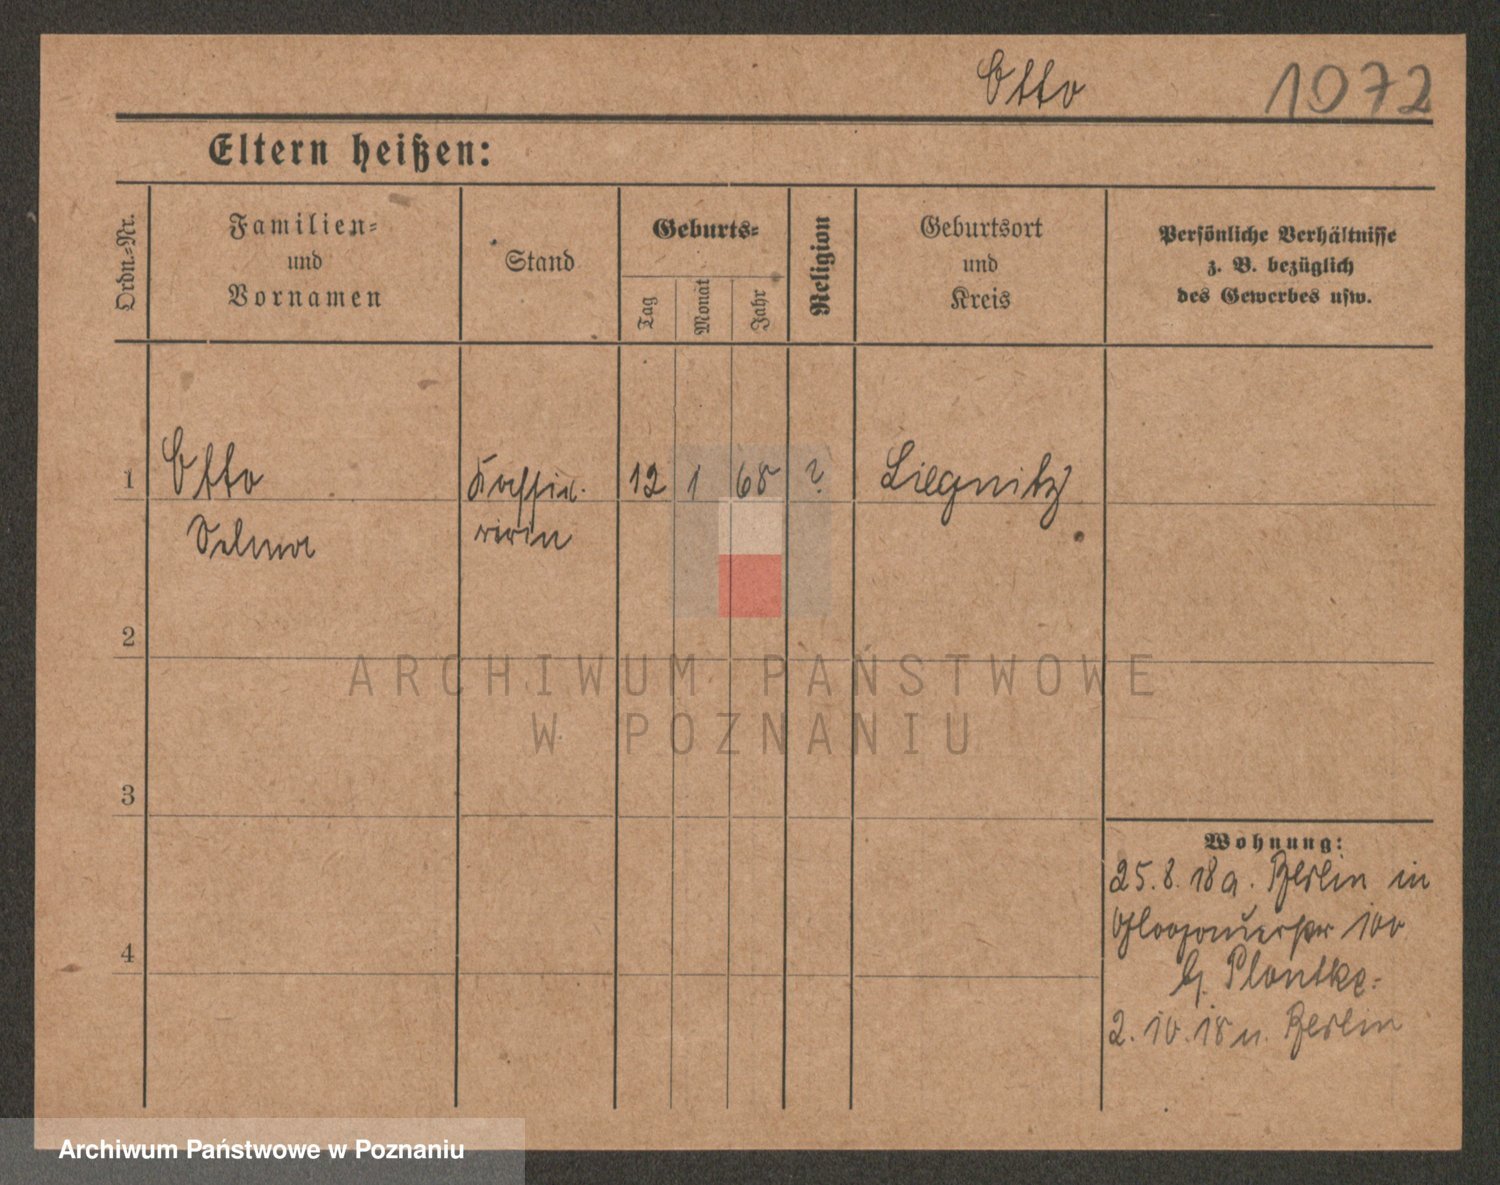 Otto 1072
Eltern heißen:
Ordn.-Nr.
Familien-
und
Vornamen
Stand
Geburts-
Tag
Monat
Jahr
Religion
Geburtsort
und
Kreis
Persönliche Verhältnisse
z. B. bezüglich
des Gewerbes usw.
1 Otto 12 1 68 ? Liegnitz
Selma
2
3
4
Wohnung:
25.8.18 a. Berlin in
Glogauerstr 100
b. Plontke.
2.10.18 n. Berlin
ARCHIWUM PAŃSTWOWE
W POZNANIU
Archiwum Państwowe w Poznaniu